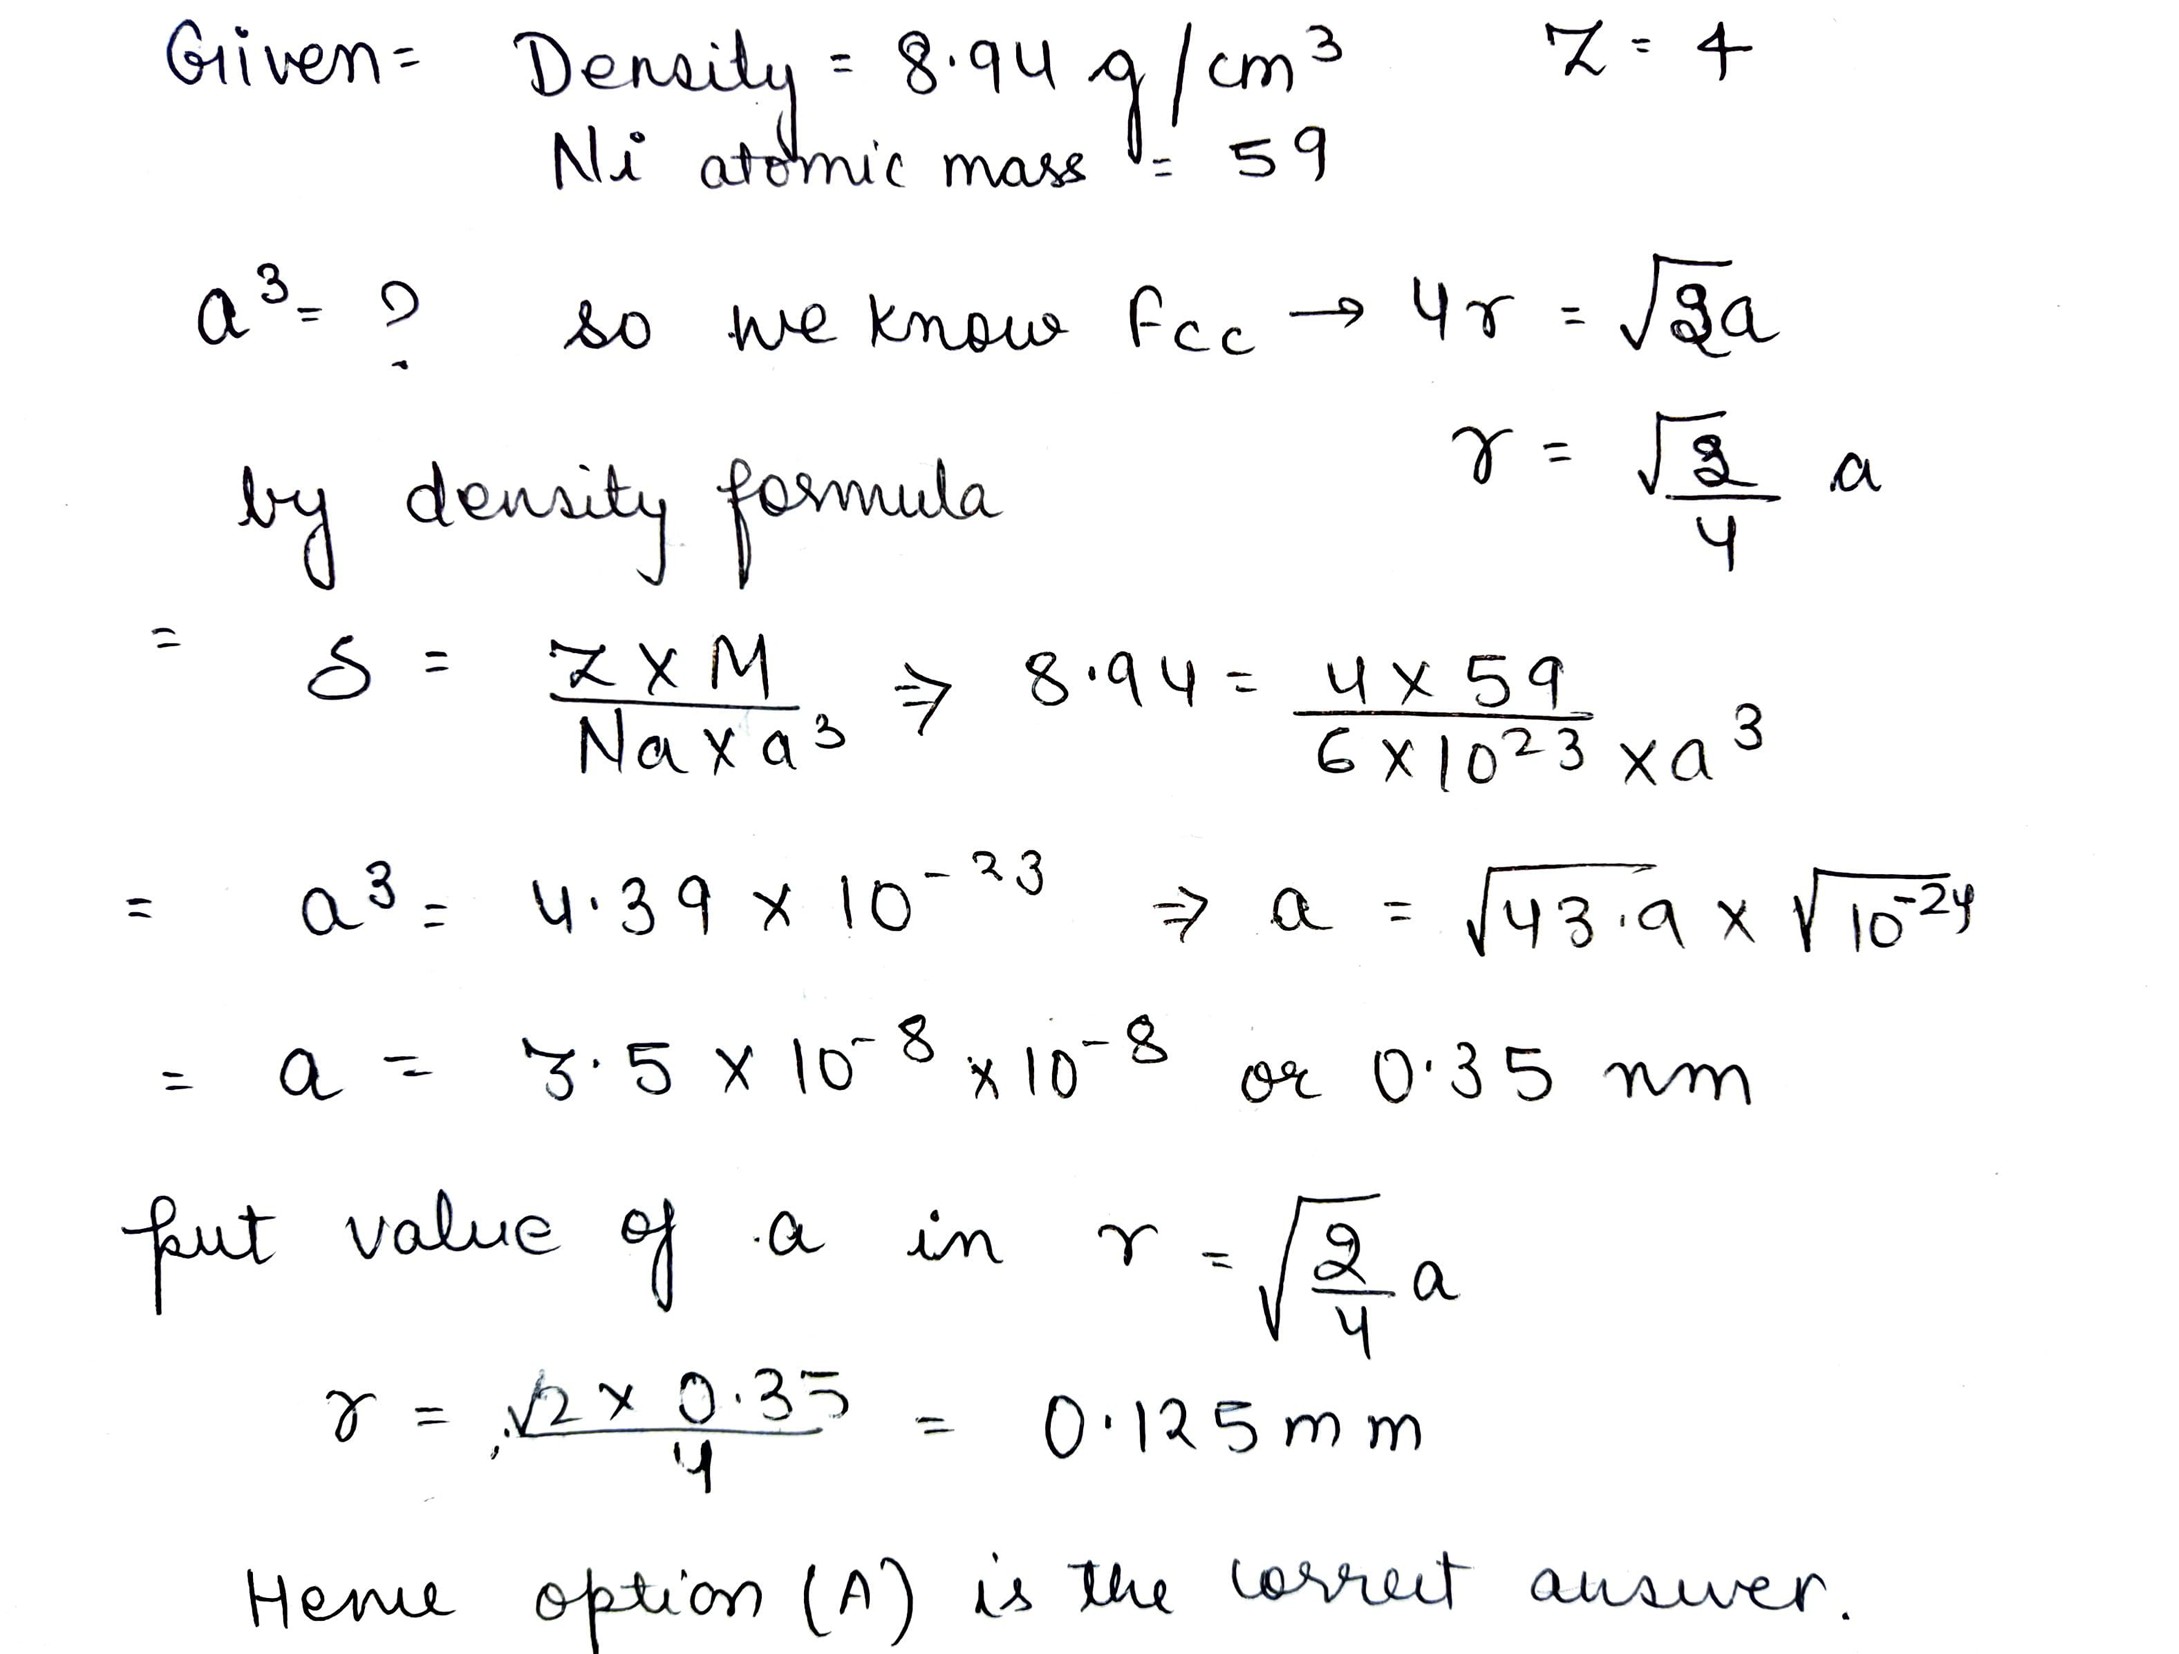 Given= Density = 8.94 g/cm³ Z = 4
Ni atomic mass = 59
a³= ? so we know fcc → 4r = √2a
r = √2/4 a
by density formula
= δ = Z×M/Na×a³ ⇒ 8.94 = 4×59/6×10²³ ×a³
= a³ = 4.39 × 10⁻²³ ⇒ a = √43.9 × √10⁻²⁴
= a = 3.5 × 10⁻⁸ ×10⁻⁸ or 0.35 nm
put value of a in r = √2/4 a
r = √2 × 0.35/4 = 0.125 mm
Hence option (A) is the correct answer.